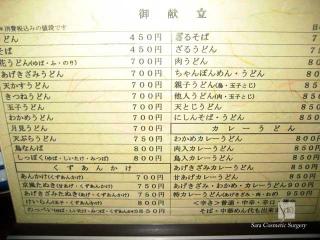 御献立
消費税込みの値段です
うどん 450円 ざるそば
そば 450円 ざるうどん
花うどん(ゆば・ふ・のり) 700円 肉うどん
あげきざみうどん 700円 ちゃんぽんめん・うどん
天かすうどん 700円 親子うどん(鳥・玉子とじ)
きつねうどん 700円 他人うどん(肉・玉子とじ)
玉子うどん 700円 天とじうどん
わかめうどん 700円 にしんそば・うどん
月見うどん 700円 カレーうどん
天ぷらうどん 750円 わかめカレーうどん
鳥なんば 800円 肉入カレーうどん
しっぽく(ゆば・しいたけ・みつば) 800円 鳥入カレーうどん
くずあんかけ あげきざみカレーうどん
あんかけ(くずあんかけ) 700円 甘あげカレーうどん
京風たぬき(甘あげ・くずあんかけ) 750円 あげきざみ・わかめ・カレーうどん 900円
たぬき(きざみあげ・くずあんかけ) 750円 特カレーうどん 950円
けいらん(玉子・くずあんかけ) 800円 <辛さ>普通・中辛・辛口
850円 そば・中華めん代も出来ま
Sara Cosmetic Surgery